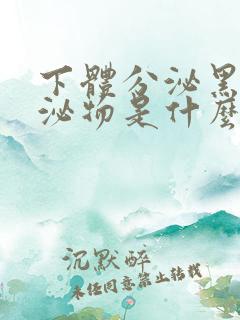 下體分泌黑
泌物是什麼
沉默醉
未任同意禁止转载